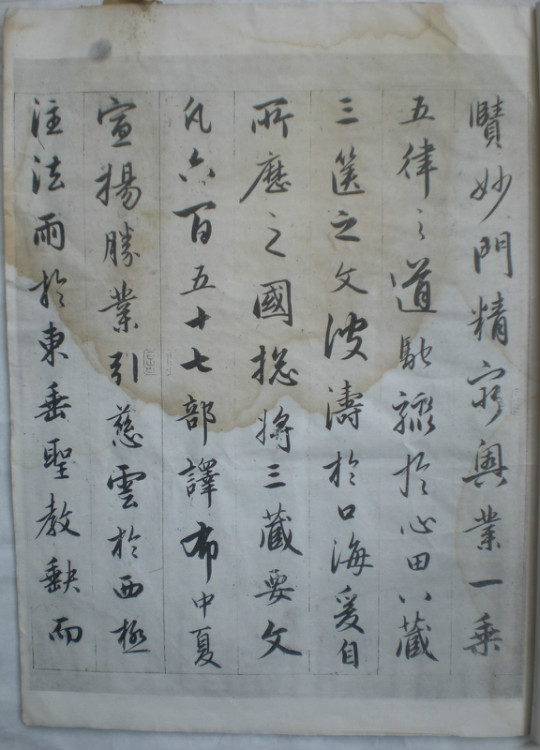 賾妙門精窮奧業一乘
五律之道馳驟於心田八藏
三篋之文波濤於口海爰自
所歷之國揔將三藏要文
凡六百五十七部譯布中夏
宣揚勝業引慈雲於西極
注法雨於東垂聖教缺而